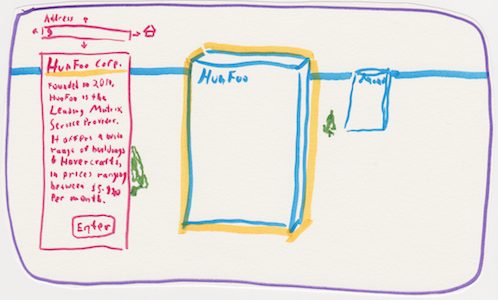 Address
HunFoo Corp.
Founded in 2010,
HunFoo is the
Leading Matrix
Service Provider.
It offers a wide
range of buildings
& Hovercrafts,
in prices ranging
between
Per month.
Enter
HunFoo